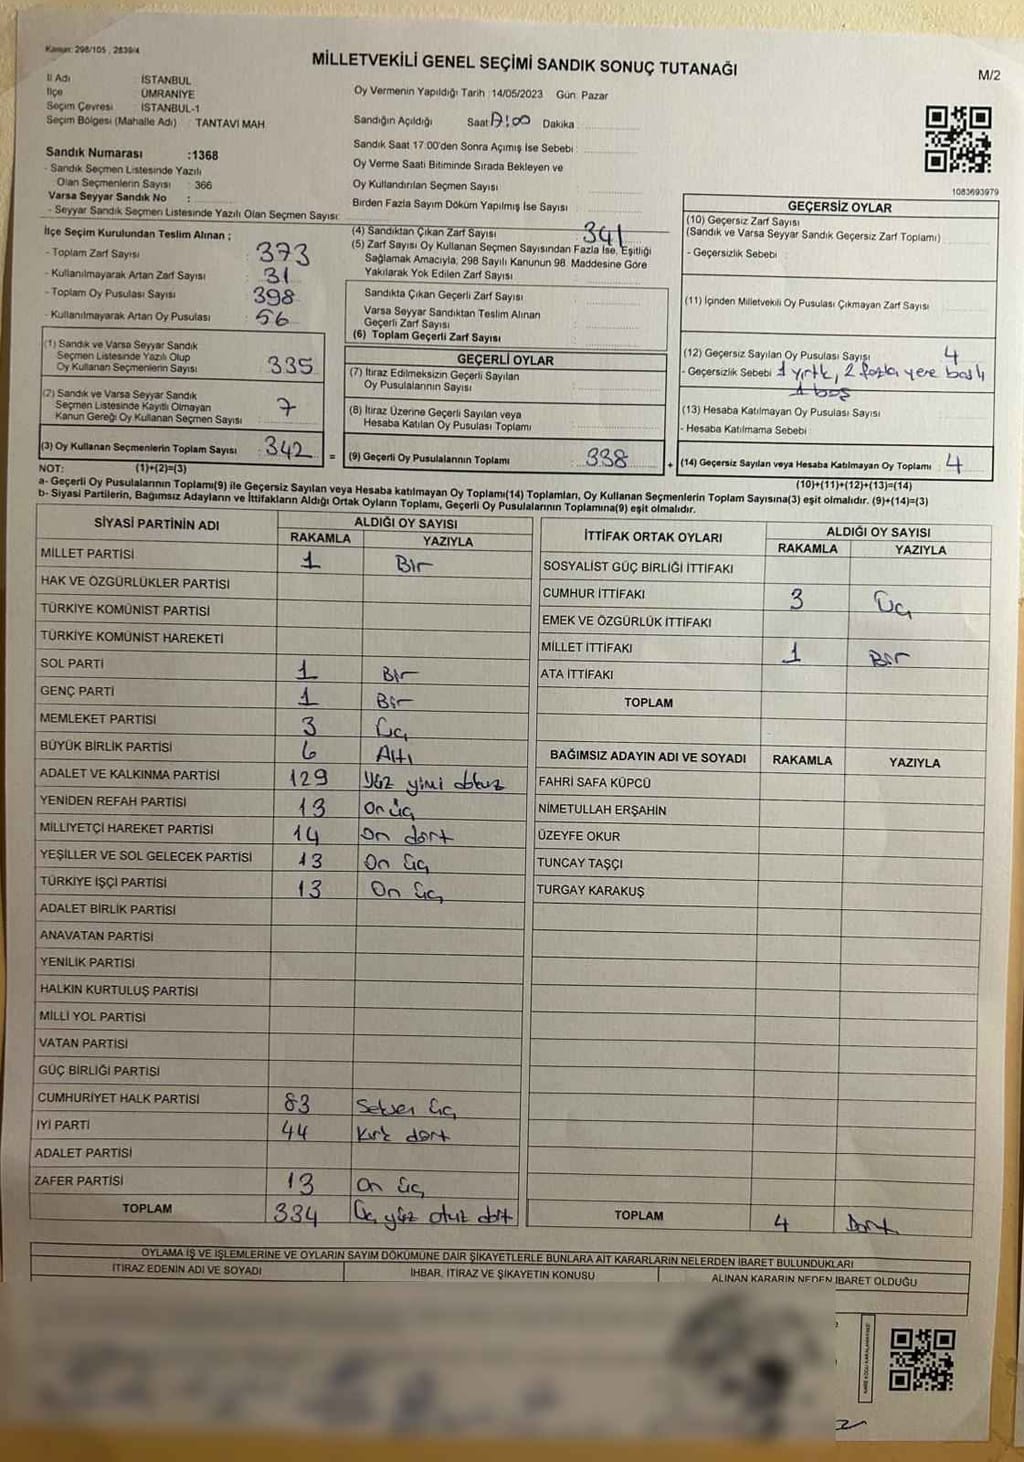 Kanun: 298/105, 2839/4
MİLLETVEKİLİ GENEL SEÇİMİ SANDIK SONUÇ TUTANAĞI
M/2
İl Adı : İSTANBUL
İlçe : ÜMRANİYE
Seçim Çevresi : İSTANBUL-1
Seçim Bölgesi (Mahalle Adı) : TANTAVİ MAH
Sandık Numarası :1368
- Sandık Seçmen Listesinde Yazılı
Olan Seçmenlerin Sayısı : 366
Varsa Seyyar Sandık No :
- Seyyar Sandık Seçmen Listesinde Yazılı Olan Seçmen Sayısı:
Oy Vermenin Yapıldığı Tarih :14/05/2023 Gün: Pazar
Sandığın Açıldığı Saat 17:00 Dakika
Sandık Saat 17:00'den Sonra Açımış İse Sebebi :
Oy Verme Saati Bitiminde Sırada Bekleyen ve
Oy Kullandırılan Seçmen Sayısı
Birden Fazla Sayım Döküm Yapılmış İse Sayısı
1083693979
İlçe Seçim Kurulundan Teslim Alınan ;
- Toplam Zarf Sayısı : 373
- Kullanılmayarak Artan Zarf Sayısı : 31
- Toplam Oy Pusulası Sayısı : 398
- Kullanılmayarak Artan Oy Pusulası : 56
(1) Sandık ve Varsa Seyyar Sandık
Seçmen Listesinde Yazılı Olup
Oy Kullanan Seçmenlerin Sayısı : 335
(2) Sandık ve Varsa Seyyar Sandık
Seçmen Listesinde Kayıtlı Olmayan
Kanun Gereği Oy Kullanan Seçmen Sayısı : 7
(3) Oy Kullanan Seçmenlerin Toplam Sayısı : 342
(4) Sandıktan Çıkan Zarf Sayısı 341
(5) Zarf Sayısı Oy Kullanan Seçmen Sayısından Fazla İse, Eşitliği
Sağlamak Amacıyla, 298 Sayılı Kanunun 98. Maddesine Göre
Yakılarak Yok Edilen Zarf Sayısı
Sandıkta Çıkan Geçerli Zarf Sayısı
Varsa Seyyar Sandıktan Teslim Alınan
Geçerli Zarf Sayısı
(6) Toplam Geçerli Zarf Sayısı
GEÇERLİ OYLAR
(7) İtiraz Edilmeksizin Geçerli Sayılan
Oy Pusulalarının Sayısı
(8) İtiraz Üzerine Geçerli Sayılan veya
Hesaba Katılan Oy Pusulası Toplamı
= (9) Geçerli Oy Pusulalarının Toplamı 338
GEÇERSİZ OYLAR
(10) Geçersiz Zarf Sayısı
(Sandık ve Varsa Seyyar Sandık Geçersiz Zarf Toplamı)
- Geçersizlik Sebebi :
(11) İçinden Milletvekili Oy Pusulası Çıkmayan Zarf Sayısı
(12) Geçersiz Sayılan Oy Pusulası Sayısı 4
- Geçersizlik Sebebi 1 yırtık, 2 fazla yere baslı
1 boş
(13) Hesaba Katılmayan Oy Pusulası Sayısı
- Hesaba Katılmama Sebebi :
+ (14) Geçersiz Sayılan veya Hesaba Katılmayan Oy Toplamı : 4
NOT: (1)+(2)=(3) (10)+(11)+(12)+(13)=(14)
a- Geçerli Oy Pusulalarının Toplamı(9) ile Geçersiz Sayılan veya Hesaba katılmayan Oy Toplamı(14) Toplamları, Oy Kullanan Seçmenlerin Toplam Sayısına(3) eşit olmalıdır. (9)+(14)=(3)
b- Siyasi Partilerin, Bağımsız Adayların ve İttifakların Aldığı Ortak Oyların Toplamı, Geçerli Oy Pusulalarının Toplamına(9) eşit olmalıdır.
SİYASİ PARTİNİN ADI ALDIĞI OY SAYISI
RAKAMLA YAZIYLA
MİLLET PARTİSİ 1 Bir
HAK VE ÖZGÜRLÜKLER PARTİSİ
TÜRKİYE KOMÜNİST PARTİSİ
TÜRKİYE KOMÜNİST HAREKETİ
SOL PARTİ 1 Bir
GENÇ PARTİ 1 Bir
MEMLEKET PARTİSİ 3 Üç
BÜYÜK BİRLİK PARTİSİ 6 Altı
ADALET VE KALKINMA PARTİSİ 129 Yüz yirmi dokuz
YENİDEN REFAH PARTİSİ 13 On üç
MİLLİYETÇİ HAREKET PARTİSİ 14 On dört
YEŞİLLER VE SOL GELECEK PARTİSİ 13 On üç
TÜRKİYE İŞÇİ PARTİSİ 13 On üç
ADALET BİRLİK PARTİSİ
ANAVATAN PARTİSİ
YENİLİK PARTİSİ
HALKIN KURTULUŞ PARTİSİ
MİLLİ YOL PARTİSİ
VATAN PARTİSİ
GÜÇ BİRLİĞİ PARTİSİ
CUMHURİYET HALK PARTİSİ 83 Seksen üç
İYİ PARTİ 44 Kırk dört
ADALET PARTİSİ
ZAFER PARTİSİ 13 On üç
TOPLAM 334 Üç yüz otuz dört
İTTİFAK ORTAK OYLARI ALDIĞI OY SAYISI
RAKAMLA YAZIYLA
SOSYALİST GÜÇ BİRLİĞİ İTTİFAKI
CUMHUR İTTİFAKI 3 Üç
EMEK VE ÖZGÜRLÜK İTTİFAKI
MİLLET İTTİFAKI 1 Bir
ATA İTTİFAKI
TOPLAM
BAĞIMSIZ ADAYIN ADI VE SOYADI RAKAMLA YAZIYLA
FAHRİ SAFA KÜPCÜ
NİMETULLAH ERŞAHİN
ÜZEYFE OKUR
TUNCAY TAŞÇI
TURGAY KARAKUŞ
TOPLAM 4 Dört
OYLAMA İŞ VE İŞLEMLERİNE VE OYLARIN SAYIM DÖKÜMÜNE DAİR ŞİKAYETLERLE BUNLARA AİT KARARLARIN NELERDEN İBARET BULUNDUKLARI
İTİRAZ EDENİN ADI VE SOYADI İHBAR, İTİRAZ VE ŞİKAYETİN KONUSU ALINAN KARARIN NEDEN İBARET OLDUĞU